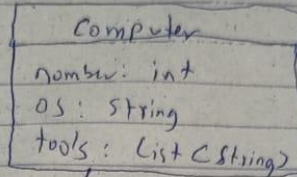 Computer
number: int
OS: string
tools: List <String>